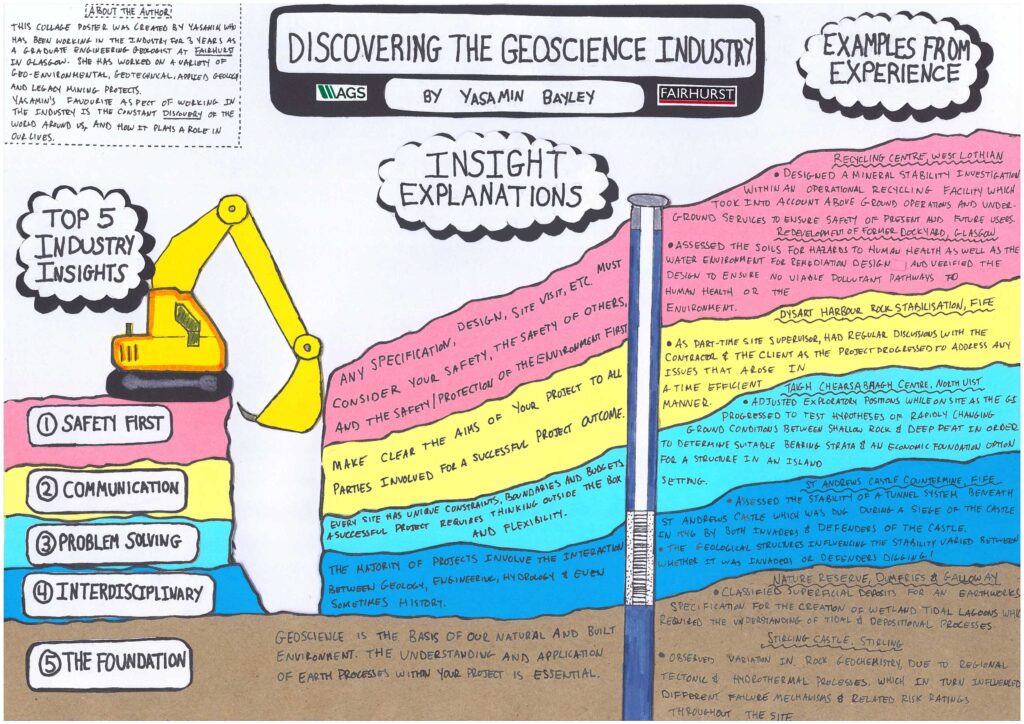 ABOUT THE AUTHOR
THIS COLLAGE POSTER WAS CREATED BY YASAMIN WHO
HAS BEEN WORKING IN THE INDUSTRY FOR 3 YEARS AS
A GRADUATE ENGINEERING GEOLOGIST AT FAIRHURST
IN GLASGOW. SHE HAS WORKED ON A VARIETY OF
GEO-ENVIRONMENTAL, GEOTECHNICAL, APPLIED GEOLOGY
AND LEGACY MINING PROJECTS.
YASAMIN'S FAVOURITE ASPECT OF WORKING IN
THE INDUSTRY IS THE CONSTANT DISCOVERY OF THE
WORLD AROUND US, AND HOW IT PLAYS A ROLE IN
OUR LIVES.
DISCOVERING THE GEOSCIENCE INDUSTRY
AGS
BY YASAMIN BAYLEY
FAIRHURST
TOP 5
INDUSTRY
INSIGHTS
① SAFETY FIRST
② COMMUNICATION
③ PROBLEM SOLVING
④ INTERDISCIPLINARY
⑤ THE FOUNDATION
INSIGHT
EXPLANATIONS
ANY SPECIFICATION, DESIGN, SITE VISIT, ETC. MUST
CONSIDER YOUR SAFETY, THE SAFETY OF OTHERS,
AND THE SAFETY/PROTECTION OF THE ENVIRONMENT FIRST
MAKE CLEAR THE AIMS OF YOUR PROJECT TO ALL
PARTIES INVOLVED FOR A SUCCESSFUL PROJECT OUTCOME.
EVERY SITE HAS UNIQUE CONSTRAINTS, BOUNDARIES AND BUDGETS
A SUCCESSFUL PROJECT REQUIRES THINKING OUTSIDE THE BOX
AND FLEXIBILITY.
THE MAJORITY OF PROJECTS INVOLVE THE INTERACTION
BETWEEN GEOLOGY, ENGINEERING, HYDROLOGY & EVEN
SOMETIMES HISTORY.
GEOSCIENCE IS THE BASIS OF OUR NATURAL AND BUILT
ENVIRONMENT. THE UNDERSTANDING AND APPLICATION
OF EARTH PROCESSES WITHIN YOUR PROJECT IS ESSENTIAL.
EXAMPLES FROM
EXPERIENCE
RECYCLING CENTRE, WEST LOTHIAN
• DESIGNED A MINERAL STABILITY INVESTIGATION
WITHIN AN OPERATIONAL RECYCLING FACILITY WHICH
TOOK INTO ACCOUNT ABOVE GROUND OPERATIONS AND UNDER-
GROUND SERVICES TO ENSURE SAFETY OF PRESENT AND FUTURE USERS.
REDEVELOPMENT OF FORMER DOCKYARD, GLASGOW
• ASSESSED THE SOILS FOR HAZARDS TO HUMAN HEALTH AS WELL AS THE
WATER ENVIRONMENT FOR REMEDIATION DESIGN, AND VERIFIED THE
DESIGN TO ENSURE NO VIABLE POLLUTANT PATHWAYS TO
HUMAN HEALTH OR THE
ENVIRONMENT.
DYSART HARBOUR ROCK STABILISATION, FIFE
• AS PART-TIME SITE SUPERVISOR, HAD REGULAR DISCUSSIONS WITH THE
CONTRACTOR & THE CLIENT AS THE PROJECT PROGRESSED TO ADDRESS ANY
ISSUES THAT AROSE IN
A TIME EFFICIENT
MANNER.
TAIGH CHEARSABHAGH CENTRE, NORTH UIST
• ADJUSTED EXPLORATORY POSITIONS WHILE ON SITE AS THE GI
PROGRESSED TO TEST HYPOTHESES OF RAPIDLY CHANGING
GROUND CONDITIONS BETWEEN SHALLOW ROCK & DEEP PEAT IN ORDER
TO DETERMINE SUITABLE BEARING STRATA & AN ECONOMIC FOUNDATION OPTION
FOR A STRUCTURE IN AN ISLAND
SETTING.
ST ANDREWS CASTLE COUNTERMINE, FIFE
• ASSESSED THE STABILITY OF A TUNNEL SYSTEM BENEATH
ST ANDREWS CASTLE WHICH WAS DUG DURING A SIEGE OF THE CASTLE
IN 1546 BY BOTH INVADERS & DEFENDERS OF THE CASTLE.
• THE GEOLOGICAL STRUCTURES INFLUENCING THE STABILITY VARIED BETWEEN
WHETHER IT WAS INVADERS OR DEFENDERS DIGGING!
NATURE RESERVE, DUMFRIES & GALLOWAY
• CLASSIFIED SUPERFICIAL DEPOSITS FOR AN EARTHWORKS
SPECIFICATION FOR THE CREATION OF WETLAND TIDAL LAGOONS WHICH
REQUIRED THE UNDERSTANDING OF TIDAL & DEPOSITIONAL PROCESSES
STIRLING CASTLE, STIRLING
• OBSERVED VARIATION IN ROCK GEOCHEMISTRY, DUE TO REGIONAL
TECTONIC & HYDROTHERMAL PROCESSES. WHICH IN TURN INFLUENCED
DIFFERENT FAILURE MECHANISMS & RELATED RISK RATINGS
THROUGHOUT THE SITE